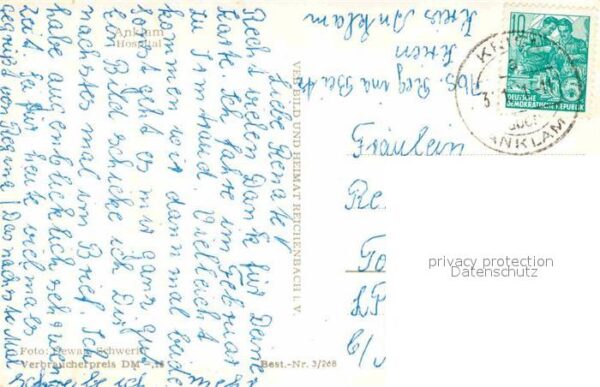 Anklam
Hospital
Liebe Renate!
Recht vielen Dank für Deine
Karte. Ich fahre im Februar
zu Irmtraud. Vielleicht
kommen wir dann mal beide
Sonst geht es mir ganz gut
Ein Bild schicke ich Dir
nächstes mal im Brief. Ich
habe augenblicklich sch wenig
zeit. Für heute vielmals
gegrüßt von Regina (Das nächste Mal
VERL BILD UND HEIMAT REICHENBACH I. V.
Foto: Schwerin
Verbraucherpreis DM –,15
Best.-Nr. 3/268
Abs. Regina
Krien
Kreis Anklam
10
DEUTSCHE
DEMOKRATISCHE REPUBLIK
ANKLAM
Fräulein
Re
To
privacy protection
Datenschutz